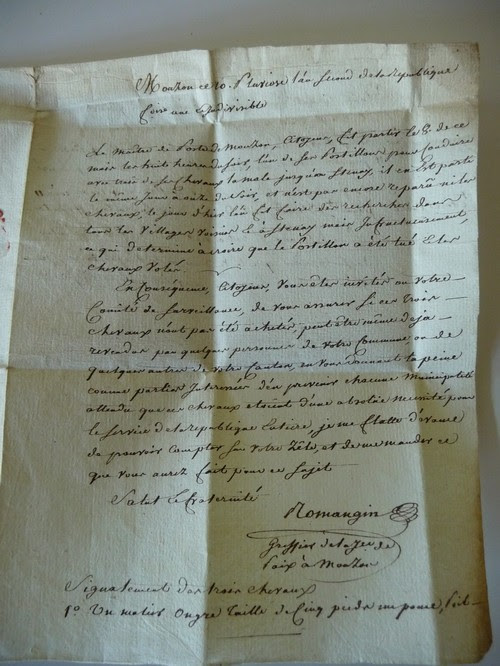 Mouzon ce 20. Pluviose l'an second de la République
une et Indivisible
Le Maitre de Poste de Mouzon, Citoyens, fit partir le 5. de ce
mois les huit heures du soir, l'un de ses Postillons pour conduire
avec trois de ses chevaux la male jusqu'au Stenay, il en est parti
le même jour à onze du soir, et n'est pas encore reparu ni les
chevaux, le jour d'hier l'on fit faire des recherches dans
tous les villages voisins à Stenay mais Infructueusement
ce qui determine à croire que le Postillon a été tué et les
chevaux volés.
En Conséquence, Citoyens, vous êtes invités ou votre
Comité de surveillance, de vous assurer si ces trois
chevaux n'ont pas été achetés, peut être même deja
revendus par quelques personnes de votre Commune ou de
quelques autres de votre Canton, en vous donnant la peine
comme parties d'en prevenir chacune Municipalité
attendu que ces chevaux etoient d'une absolue necessité pour
le service de la republique Entiere, je me flatte d'avance
de pouvoir compter sur votre zèle, et de me mander ce
que vous aurez fait pour ce sujet
Salut et fraternité
Romangin
Greffier de la Jce de
Paix à Mouzon
Signalement des trois chevaux
1º. Un ongre taille de cinq pieds un pouce,